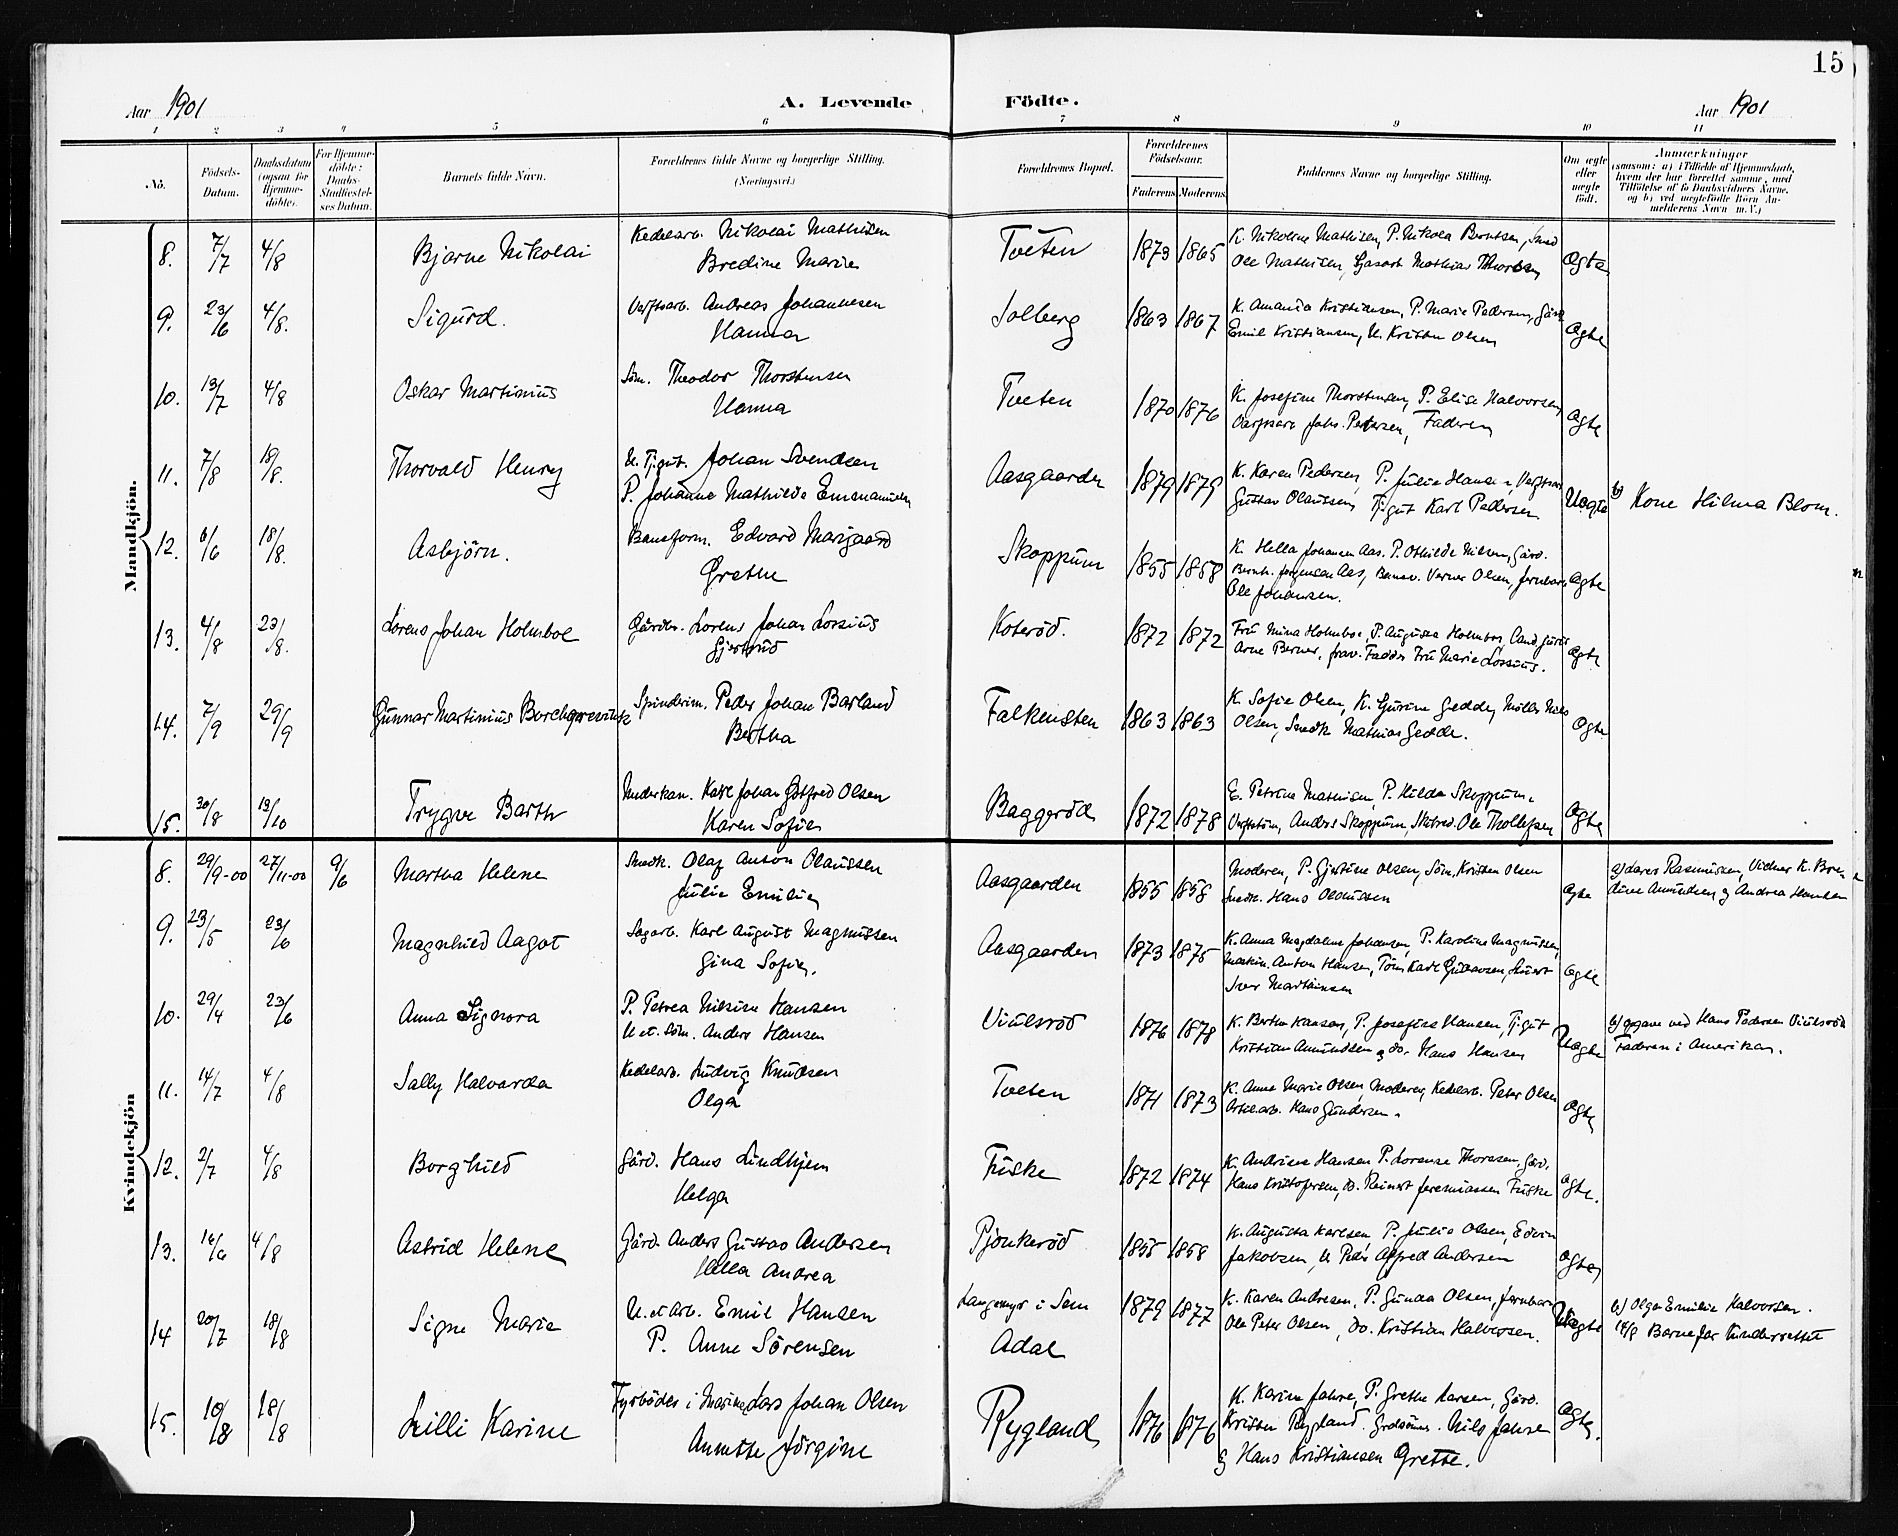 15
Aar 1901 A. Levende Födte. Aar 1901
1 2 3 4 5 6 7 8 9 10 11
No. Födsels-Datum. Daabsdatum (ogsaa for Hjemme-döbte). For Hjemme-döbte: Daabs-Stadfæstel-ses Datum. Barnets fulde Navn. Forældrenes fulde Navne og borgerlige Stilling. (Næringsvei.) Forældrenes Bopæl. Forældrenes Födselsaar. Faderens Moderens Faddernes Navne og borgerlige Stilling. Om ægte eller uægte født. Anmærkninger (saasom: a) i Tilfælde af Hjemmedaab, hvem der har forrettet samme, med Tilföielse af to Daabsvidners Navne, og b) ved uægtefödte Börn An-melderens Navn m. V.)
Mandkjön.
8. 7/7 4/8 Bjarne Nikolai Kedelarb. Nikolai Mathisen Tveten 1873 1865 K. Nikoline Mathisen, P. Nikola Berntsen, Smed
Bredine Marie Ole Mathisen, Mathias Ægte
9. 23/6 4/8. Sigurd. Verftsarb. Andreas Johannesen Solberg 1863 1867 K. Amanda Kristiansen, P. Marie Pedersen,
Hanna Emil Kristiansen, U. Kristen Olsen Ægte
10. 13/7 4/8 Oskar Martinius Söm. Theodor Thorstensen Tveten 1870 1876 K. Josefine Thorstensen, P. Elise Halvorsen,
Hanna Johs. Petersen, Faderen Ægte
11. 7/8 18/8. Thorvald Henry U. Tjgut. Johan Svendsen Aasgaarden 1879 1879 K. Karen Pedersen, P. Julie Hansen, Verftsarb
P. Johanne Mathilde Emanuelsen Gustav Olaussen, Tjgut Karl Pedersen Uægte b) Kone Hilma Blom.
12. 6/6 18/8. Asbjörn. Baneform. Edvard Skoppum 1855 1858 K. Hella Johansen Aas. P. Othilde Nilsen, Gård.
Grethe Bernh. Jörgensen Aas, Banev. Verner Olsen, Jernbarb Ægte
Ole Johansen.
13. 4/8 23/8. Lorens Johan Holmboe Gårdbr. Lorens Johan Lossius Koteröd. 1872 1872 Fru Mina Holmboe, P. Augusta Holmboe, Cand. juris
Gjertrud Arne Berner, frav. Fadder Fru Marie Lossius. Ægte
14. 7/9 29/9 Gunnar Martinius Borchgrevink Spinderim. Peder Johan Barland Falkensten 1863 1863 K. Sofie Olsen, K. Gurine Gedde, Möller Nils
Bertha Olsen, Snedk Mathias Gedde. Ægte
15. 30/8 13/10 Trygve Barth Karl Johan Gotfred Olsen Baggeröd 1872 1878 E. Petrine Mathisen, P. Hilda Skoppum,
Karen Sofie Anders Skoppum, Ole Thollefsen Ægte
Kvindekjön
8. 29/9-00 27/11-00 9/6 Martha Helene Snedk. Olaf Anton Olaussen Aasgaarden 1855 1858 Moderen, P. Gjertine Olsen, Söm. Kristen Olsen a) Lars Rasmussen, Vidner K. Bre-
Julie Emilie Snedk. Hans Olaussen Ægte dine Amundsen og Andrea Hansen
9. 23/5 23/6 Magnhild Aagot Sagarb. Karl August Magnussen Aasgaarden 1873 1875 K. Anna Magdalene Johansen, P. Karoline Magnussen,
Gina Sofie. Maskin. Anton Hansen, Töm Karl Gustavsen, Ægte
Iver Martinsen
10. 29/4 23/6 Anna Signora P. Petrea Nilsine Hansen Viulsröd 1876 1878 K. Berthe Hansen, P. Josefine Hansen, Tjgut b) opgave ved Hans Pedersen Viulsröd
U. et. Söm. Anders Hansen Kristian Amundsen og do. Hans Hansen Uægte Faderen i Amerika.
11. 14/7 4/8 Sally Halvarda Kedelarb. Ludvig Knudsen Tveten 1871 1873 K. Anne Marie Olsen, Moderen, Kedelarb. Peter Olsen
Olga Hans Gundersen. Ægte
12. 2/7 4/8 Borghild Gård. Hans Lindhjem Fuske 1872 1874 K. Andrine Hansen P. Lorense Thoresen, Gård.
Helga Hans Kristofersen, do. Reinert Jeremiassen Fuske Ægte.
13. 16/6 4/8 Astrid Helene Gård. Anders Gustav Andersen Pjonkeröd 1855 1858 K. Augusta Karlsen, P. Julie Olsen, Edvin
Hella Andrea Jakobsen, U. Peder Alfred Andersen Ægte
14 20/7 18/8 Signe Marie U. et Arb. Emil Hansen Langemyr i Sem 1879 1877 K. Karen Andresen, P. Gunda Olsen, Jernbarb b) Olga Emilie Halvorsen.
P. Anne Sörensen Adal Ole Peter Olsen, do. Kristian Halvorsen. Uægte 14/9 Barnefar Underrettet
15. 10/8 18/8 Lilli Karine Fyrböder i Marinen Lars Johan Olsen Rygland 1876 1876 K. Karine Jahre, P. Grethe Larsen, Gård.
Annette Jörgine Kristen Rygland. Grdsönn. Nils Jahre Ægte.
& Hans Kristiansen Grette.